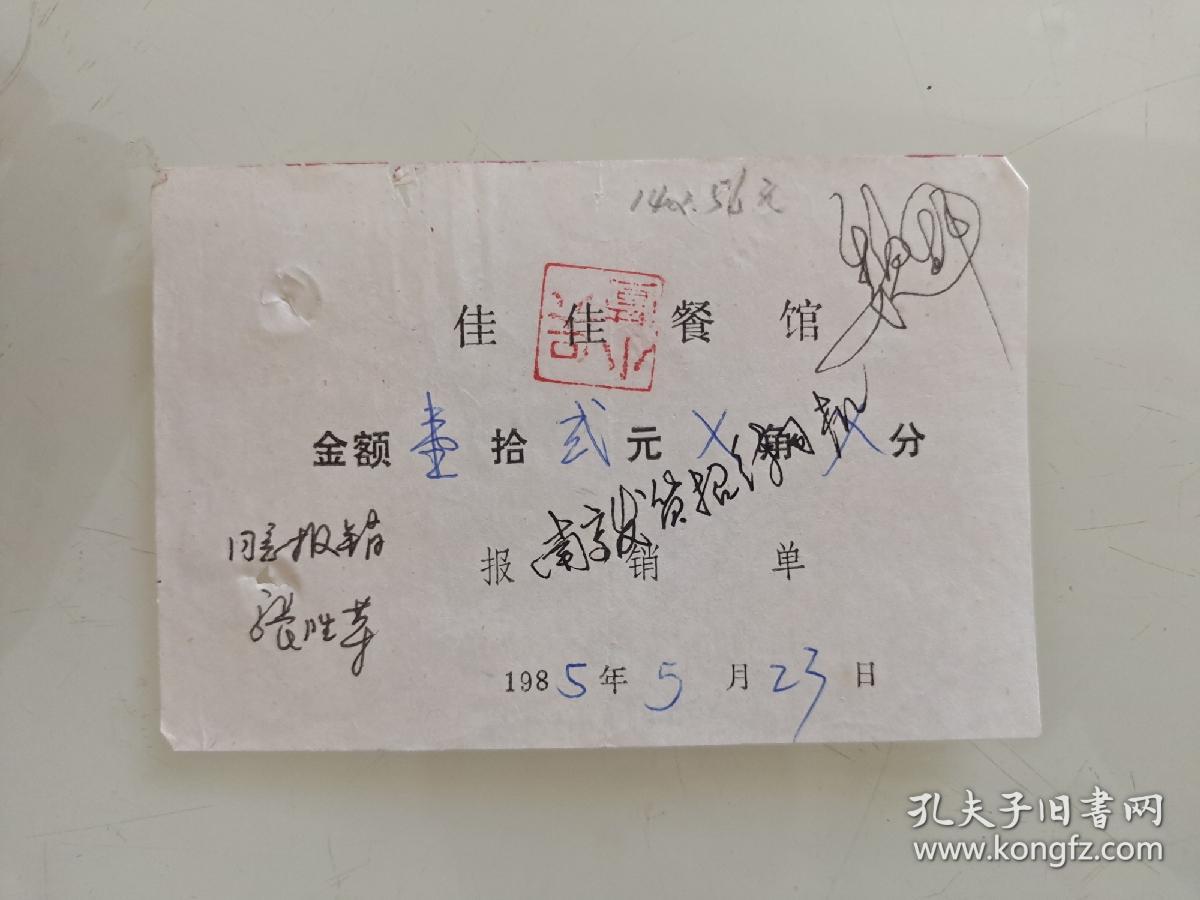 佳佳餐馆
金额 壹 拾 贰 元 X 角 X 分
南京发货招待
同意报销
报销单
张胜华
1985年5月23日
孔夫子旧书网
www.kongfz.com